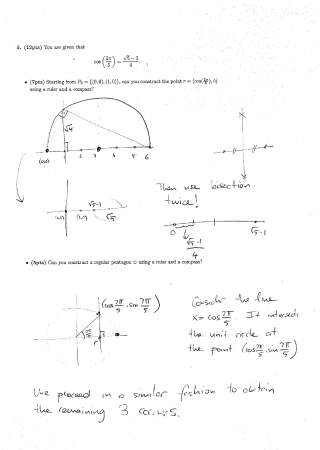 5. (12pts) You are given that
cos(2π/5) = (√5-1)/4.
• (7pts) Starting from P₀ = {(0,0),(1,0)}, can you construct the point r = (cos(2π/5), 0)
using a ruler and a compass?
√5
(0,0) 1 2 3 4 5 6
√5-1
(0,0) (1,0) √5
Then use bisection
twice!
0 √5-1
√5-1
4
• (5pts) Can you construct a regular pentagon using a ruler and a compass?
(cos 2π/5, sin 2π/5)
2π/5
r
Consider the line
x = cos 2π/5. It intersects
the unit circle at
the point (cos 2π/5, sin 2π/5)
We proceed in a similar fashion to obtain
the remaining 3 corners.